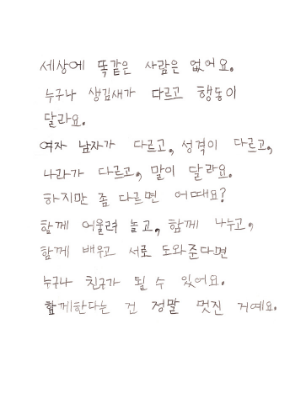 세상에 똑같은 사람은 없어요.
누구나 생김새가 다르고 행동이
달라요.
여자 남자가 다르고, 성격이 다르고,
나라가 다르고, 말이 달라요.
하지만 좀 다르면 어때요?
함께 어울려 놀고, 함께 나누고,
함께 배우고 서로 도와준다면
누구나 친구가 될 수 있어요.
함께한다는 건 정말 멋진 거예요.